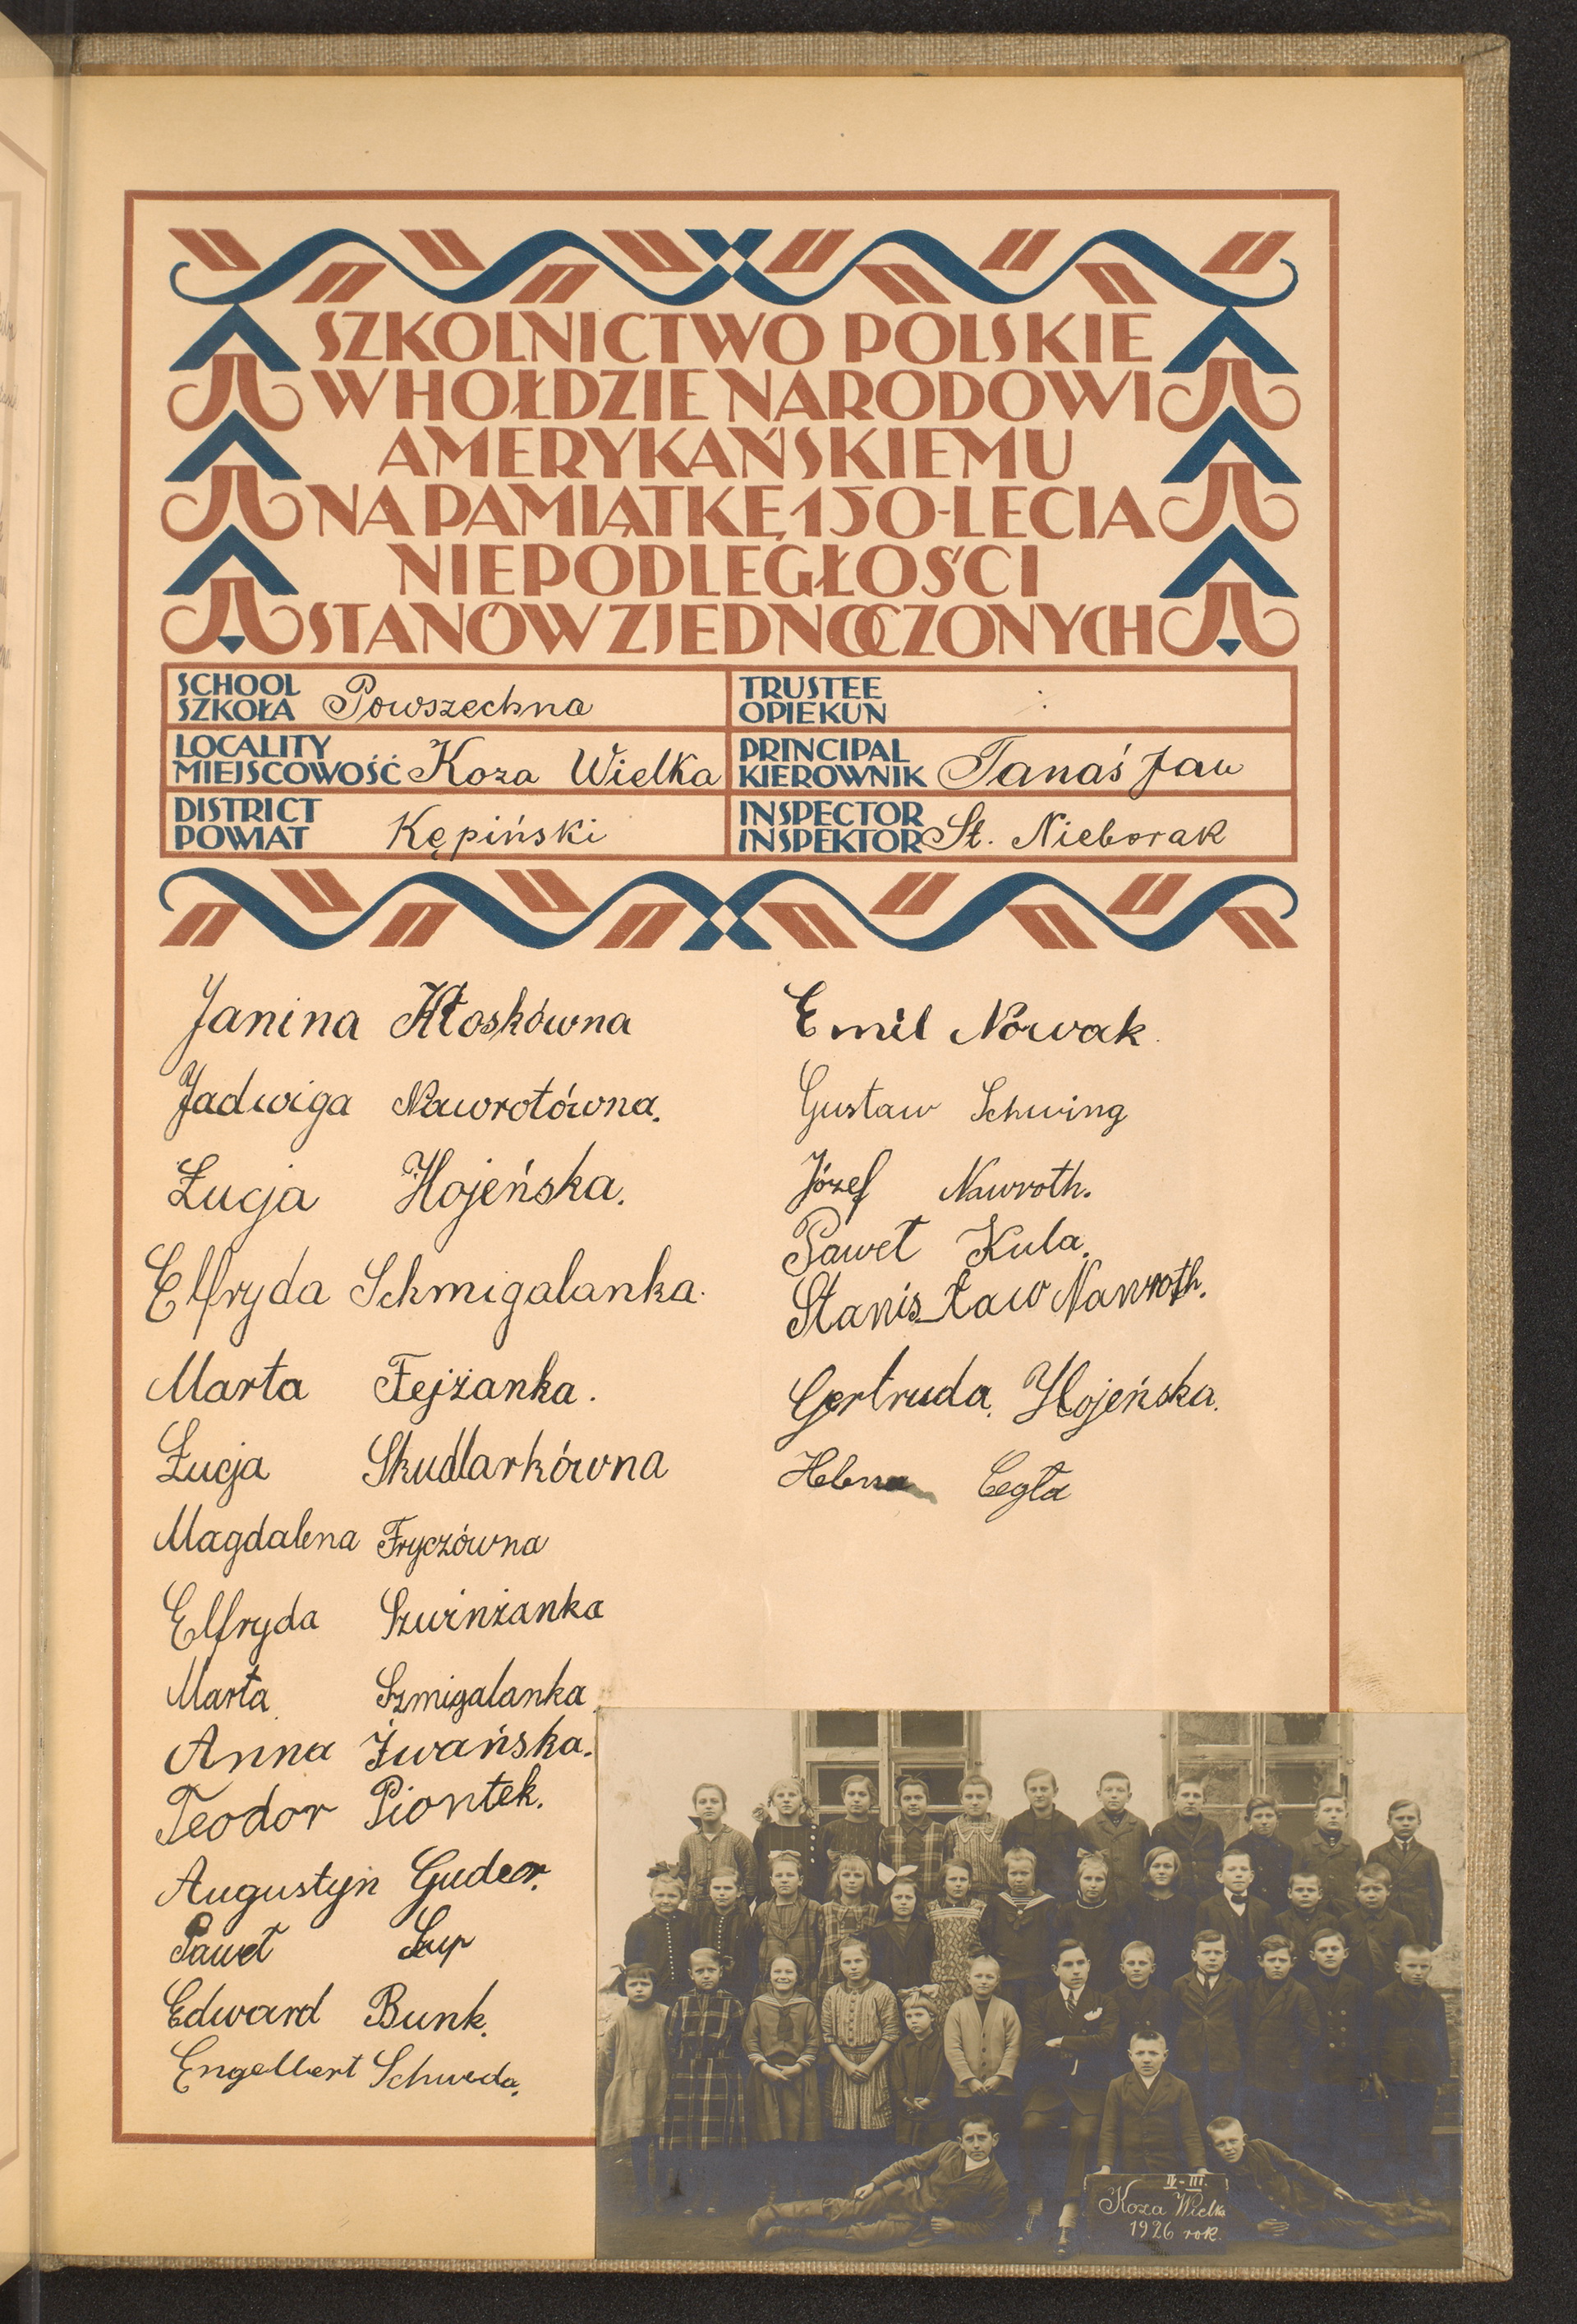 SZKOLNICTWO POLSKIE
W HOŁDZIE NARODOWI
AMERYKAŃSKIEMU
NA PAMIĄTKĘ 150-LECIA
NIEPODLEGŁOŚCI
STANÓW ZJEDNOCZONYCH
SCHOOL
SZKOŁA Powszechna
LOCALITY
MIEJSCOWOŚĆ Koza Wielka
DISTRICT
POWIAT Kępiński
TRUSTEE
OPIEKUN
PRINCIPAL
KIEROWNIK Tanaś Jan
INSPECTOR
INSPEKTOR St. Nieborak
Janina Kłoskówna
Jadwiga Nawrotówna.
Łucja Hojeńska.
Elfryda Schmigalanka.
Marta Fejżanka.
Łucja Skudlarkówna
Magdalena Fryczówna
Elfryda Szwinżanka
Marta Szmigalanka
Anna Iwańska.
Teodor Piontek.
Augustyn Guder.
Paweł
Edward Bunk.
Engelbert Schweda.
Emil Nowak.
Gustaw Schwing
Józef Nawroth.
Paweł Kula.
Stanisław Nawroth.
Gertruda Hojeńska.
Helena Cegła
IV-III.
Koza Wielka
1926 rok.